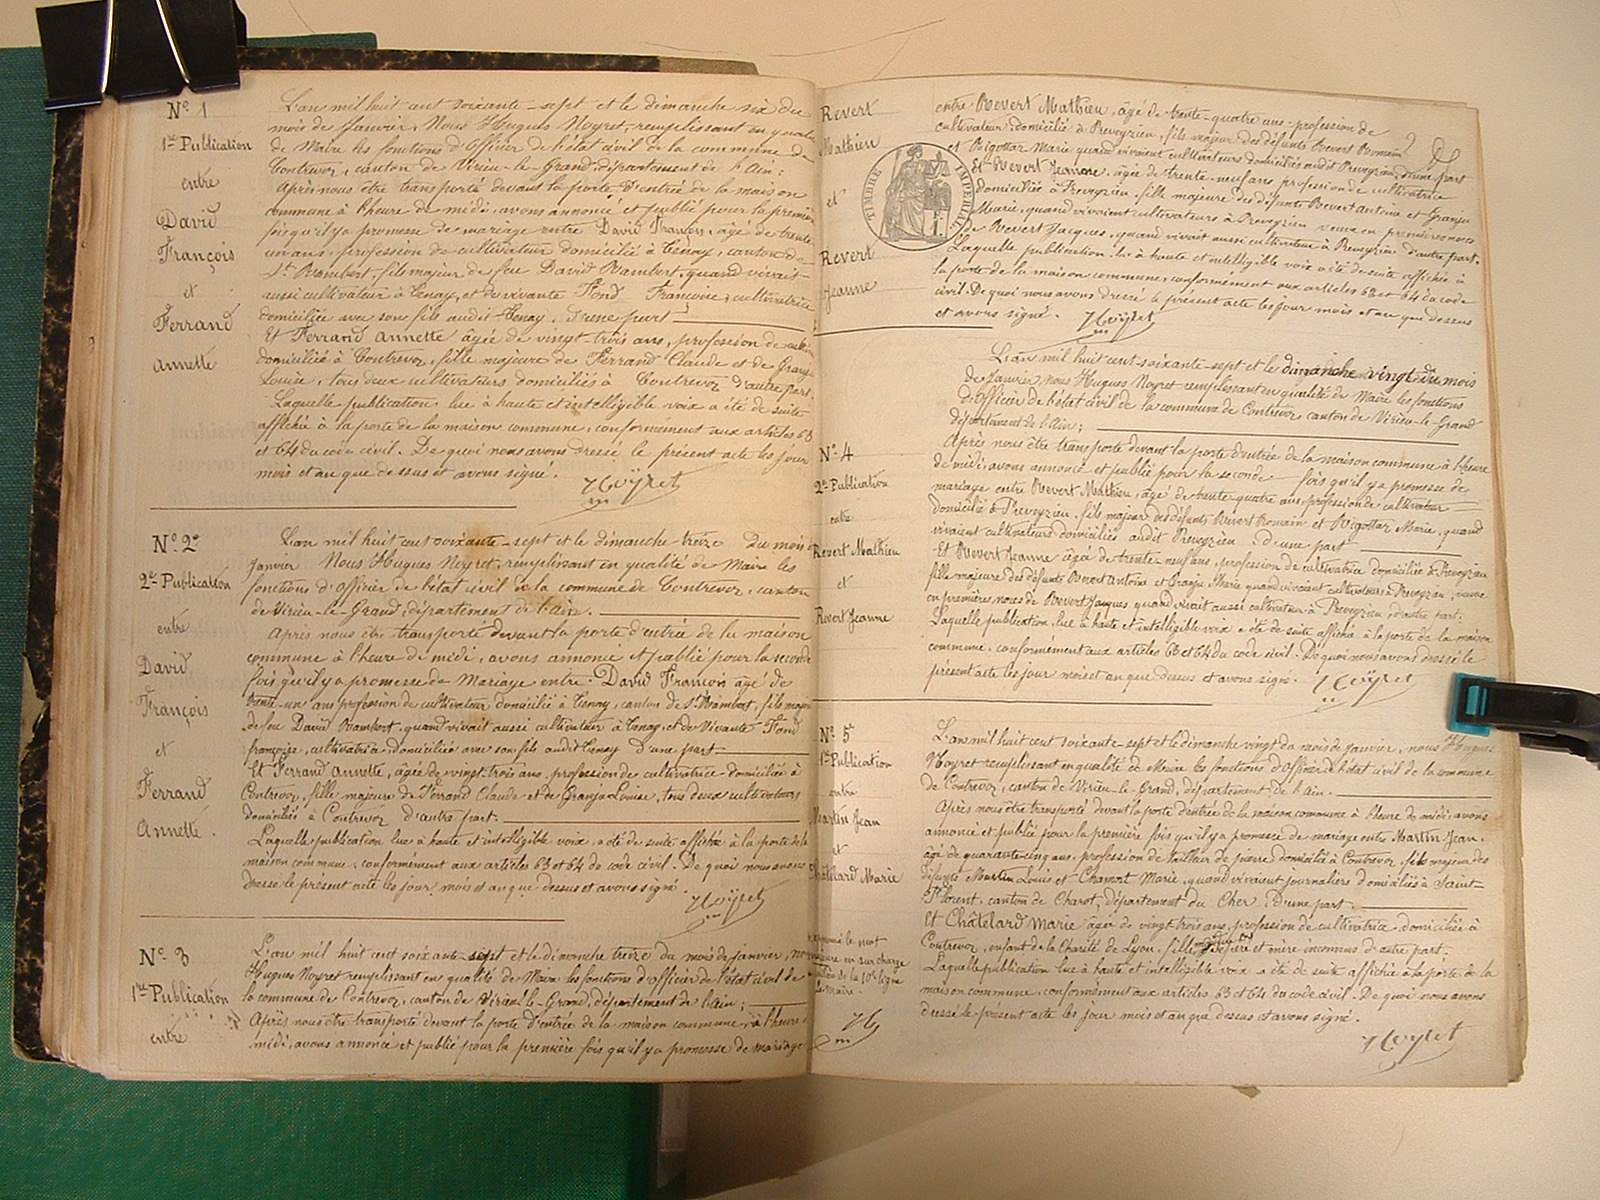 N° 1
1re Publication
entre
David
François
et
Ferrand
Annette
L'an mil huit cent soixante-sept et le dimanche six du
mois de Janvier, Nous Hugues Noyret, remplissant en qualité
de Maire les fonctions d'Officier de l'état civil de la commune de
Contrevoz, canton de Virieu-le-Grand, département de l'Ain;
Après nous être transporté devant la porte d'entrée de la maison
commune à l'heure de midi, avons annoncé et publié pour la première
fois qu'il y a promesse de mariage entre David François, âgé de trente
un ans, profession de cultivateur domicilié à Tenay, canton de
St Rambert, fils majeur de feu David Rambert, quand vivait
aussi cultivateur à Tenay, et de vivante Fond Françoise, cultivatrice
domiciliée avec son fils audit Tenay, d'une part
Et Ferrand Annette âgée de vingt-trois ans, profession de
domiciliée à Contrevoz, fille majeure de Ferrand Claude et de Granju
Louise, tous deux cultivateurs domiciliés à Contrevoz d'autre part.
Laquelle publication, lue à haute et intelligible voix a été de suite
affichée à la porte de la maison commune, conformément aux articles 63
et 64 du code civil. De quoi nous avons dressé le présent acte les jour
mois et an que dessus et avons signé.
Noyret
N° 2
2e Publication
entre
David
François
et
Ferrand
Annette.
L'an mil huit cent soixante-sept et le dimanche treize du mois
Janvier Nous Hugues Noyret, remplissant en qualité de Maire les
fonctions d'Officier de l'état civil de la commune de Contrevoz, canton
de Virieu-le-Grand, département de l'Ain.
Après nous être transporté devant la porte d'entrée de la maison
commune à l'heure de midi, avons annoncé et publié pour la seconde
fois qu'il y a promesse de Mariage entre: David François âgé de
trente-un ans profession de cultivateur domicilié à Tenay, canton de St Rambert, fils majeur
de feu David Rambert, quand vivait aussi cultivateur à Tenay, et de Vivante Fond
françoise, cultivatrice domiciliée avec son fils audit Tenay d'une part
Et Ferrand Annette, âgée de vingt-trois ans, profession de cultivatrice domiciliée à
Contrevoz, fille majeure de Ferrand Claude et de Granju Louise, tous deux cultivateurs
domiciliés à Contrevoz d'autre part.
Laquelle publication lue à haute et intelligible voix, a été de suite affichée à la porte de la
maison commune, conformément aux articles 63 et 64 du code civil. De quoi nous avons
dressé le présent acte les jour, mois et an que dessus et avons signé.
Noyret
N° 3
1re Publication
entre
L'an mil huit cent soixante sept et le dimanche treize du mois de Janvier, nous
Hugues Noyret remplissant en qualité de Maire les fonctions d'officier de l'état civil de
la commune de Contrevoz, canton de Virieu-le-Grand, département de l'ain;
Après nous être transporté devant la porte d'entrée de la maison commune, à l'heure
midi, avons annoncé et publié pour la première fois qu'il y a promesse de mariage
Revert
Mathieu
et
Revert
Jeanne
TIMBRE IMPERIAL
1 F.
entre Revert Mathieu, âgé de trente-quatre ans, profession de
cultivateur, domicilié à Preveyzieu, fils majeur des défunts Revert Romain
et Rigottaz Marie quand vivaient cultivateurs domiciliés audit Preveyzieu, d'une part
Et Revert Jeanne, âgée de trente-neuf ans, profession de cultivatrice
domiciliée à Preveyzieu, fille majeure des défunts Revert Antoine et Granju
Marie, quand vivaient cultivateurs à Preveyzieu veuve en premières noces
de Revert Jacques, quand vivait aussi cultivateur à Preveyzieu d'autre part.
Laquelle publication, lue à haute et intelligible voix a été de suite affichée à
la porte de la maison commune, conformément aux articles 63 et 64 du code
civil. De quoi nous avons dressé le présent acte les jour mois et an que dessus
et avons signé. Noyret
N° 4
2e Publication
entre
Revert Mathieu
et
Revert Jeanne
L'an mil huit cent soixante-sept et le dimanche vingt du mois
de Janvier, nous Hugues Noyret remplissant en qualité de Maire les fonctions
d'Officier de l'état civil de la commune de Contrevoz canton de Virieu-le-Grand
département de l'Ain;
Après nous être transporté devant la porte d'entrée de la maison commune à l'heure
de midi, avons annoncé et publié pour la seconde fois qu'il y a promesse de
mariage entre Revert Mathieu, âgé de trente-quatre ans, profession de cultivateur
domicilié à Preveyzieu, fils majeur des défunts Revert Romain et Rigottaz Marie, quand
vivaient cultivateurs domiciliés audit Preveyzieu, d'une part
Et Revert Jeanne âgée de trente-neuf ans, profession de cultivatrice domiciliée à Preveyzieu
fille majeure des défunts Revert Antoine et Granju Marie quand vivaient cultivateurs à Preveyzieu, veuve
en premières noces de Revert Jacques quand vivait aussi cultivateur à Preveyzieu, d'autre part:
Laquelle publication, lue à haute et intelligible voix a été de suite affichée à la porte de la maison
commune, conformément aux articles 63 et 64 du code civil. De quoi nous avons dressé le
présent acte les jour, mois et an que dessus et avons signé. Noyret
N° 5
1re Publication
entre
Martin Jean
et
Châtelard Marie
L'an mil huit cent soixante-sept et le dimanche vingt du mois de Janvier, nous Hugues
Noyret remplissant en qualité de Maire les fonctions d'Officier de l'état civil de la commune
de Contrevoz, canton de Virieu-le-Grand, département de l'Ain.
Après nous être transporté devant la porte d'entrée de la maison commune à l'heure de midi, avons
annoncé et publié pour la première fois qu'il y a promesse de mariage entre Martin Jean,
âgé de quarante-cinq ans, profession de tailleur de pierre domicilié à Contrevoz, fils majeur des
défunts Martin Louis et Chamort Marie, quand vivaient journaliers domiciliés à Saint-
Florent, canton de Charot, département du Cher, d'une part.
Et Châtelard Marie âgée de vingt trois ans, profession de cultivatrice domiciliée à
Contrevoz, enfant de la Charité de Lyon, fille de père et mère inconnus d'autre part;
Laquelle publication lue à haute et intelligible voix a été de suite affichée à la porte de la
maison commune, conformément aux articles 63 et 64 du code civil. De quoi nous avons
dressé le présent acte les jour mois et an que dessus et avons signé.
Noyret
le mot
en surcharge
de la 10e ligne
Le Maire.